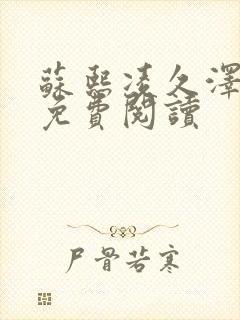 蘇熙凌久澤
免費閱讀
尸骨若寒